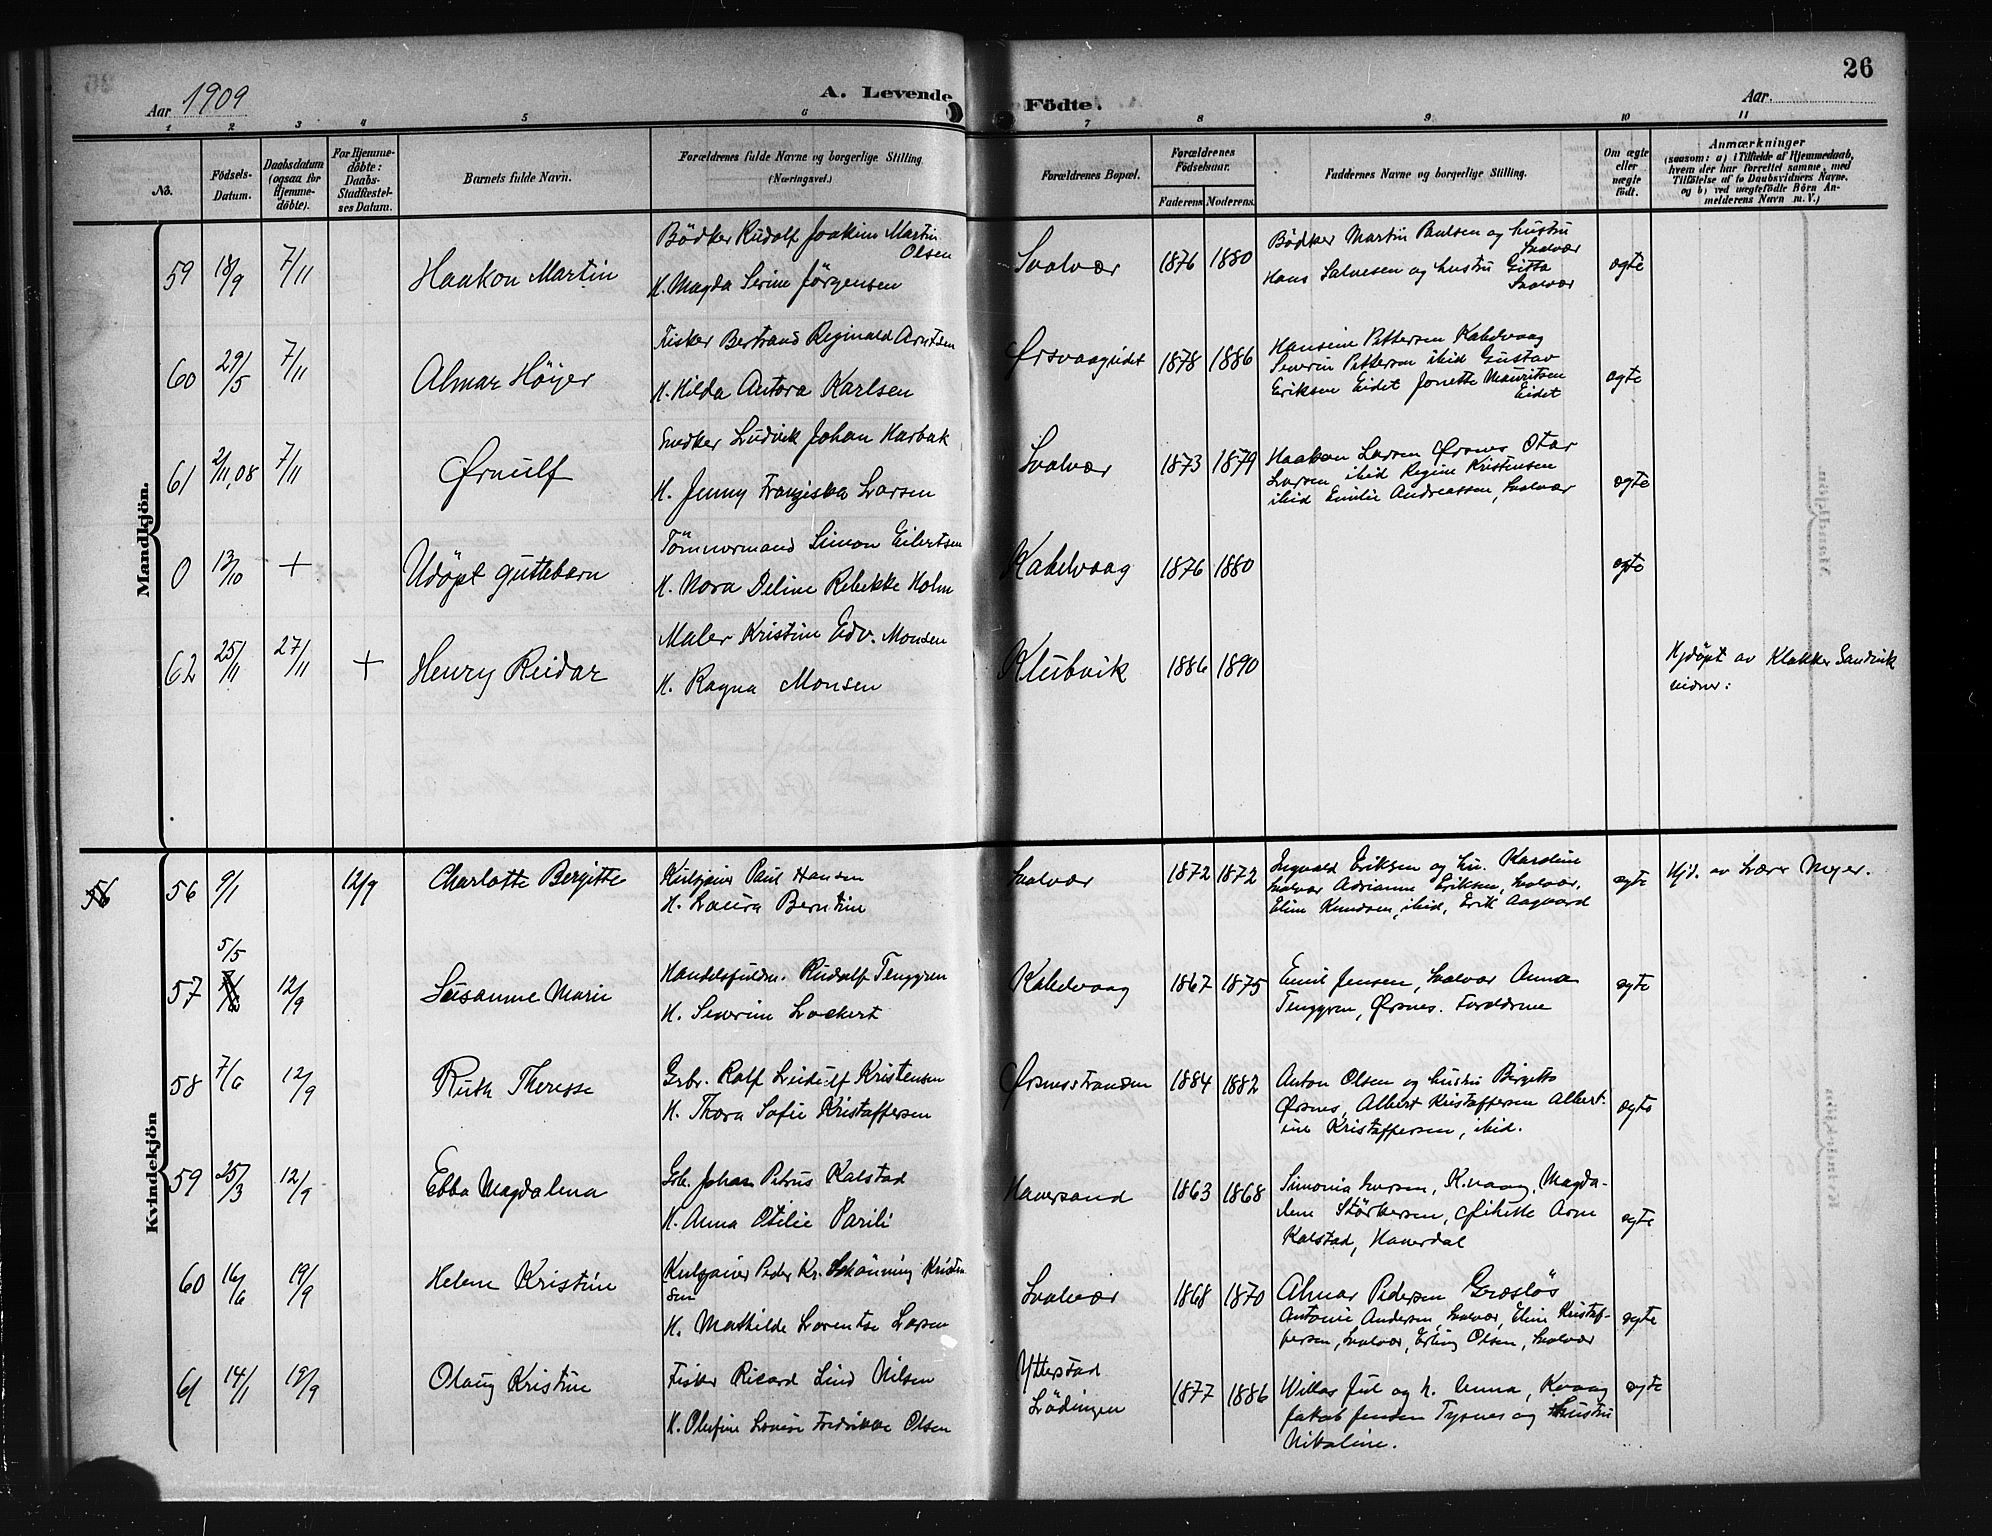 26
Aar 1909
A. Levende Födte.
Aar
1 2 3 4 5 6 7 8 9 10 11
No.
Födsels-Datum.
Daabsdatum (ogsaa for Hjemme-döbte).
For Hjemme-döbte: Daabs-Stadfæstel-ses Datum.
Barnets fulde Navn.
Forældrenes fulde Navne og borgerlige Stilling.
(Næringsvei.)
Forældrenes Bopæl.
Forældrenes Födselsaar.
Faderens. Moderens.
Faddernes Navne og borgerlige Stilling.
Om ægte eller uægte födt.
Anmærkninger
(saasom: a) i Tilfælde af Hjemmedaab,
hvem der har forrettet samme, med
Tilföielse af to Daabsvidners Navne,
og b) ved uægtefödte Börn An-
melderens Navn m. V.)
Mandkjön.
59 18/9 7/11 Haakon Martin
Bödker Rudolf Joakim Martin Olsen
H. Magda Serine Jörgensen
Svolvær 1876 1880
Bödker Martin Paulsen og hustru Svolvær
Hans Salvesen og hustru Gitta Svolvær
ægte
60 29/5 7/11 Almar Höyer
Fisker Bertrand Reginald Arntsen
H. Hilda Antora Karlsen
Ørsvaageidet 1878 1886
Hansine Pettersen Kabelvaag
Severin Pettersen ibid Gustav
Eriksen Eidet Jonette Mauritsen
Eidet
ægte
61 2/11,08 7/11 Ørnulf
Snedker Ludvik Johan Harbak
H. Jenny Franziska Larsen
Svolvær 1873 1879
Haakon Larsen Ørsnes Otar
Larsen ibid Regine Kristensen
ibid Emilie Andreassen, Svolvær
ægte
0 13/10 + Udöpt guttebarn
Tömmermand Simon Eilertsen
H. Nora Deline Rebekke Holm
Kabelvaag 1876 1880
ægte
62 25/11 27/11 + Henry Reidar
Maler Kristian Edv. Monsen
H. Ragna Monsen
Klubvik 1886 1890
Hjdöpt av Klokker Sandvik
vidner:
Kvindekjön
56 56 9/1 12/9 Charlotte Bergitte
Kulgjöier Paul Hansen
H. Laura Berntine
Svolvær 1872 1872
Ingvald Eriksen og hu. Karoline
Svolvær Adrianne Eriksen, Svolvær,
Eline Knudsen, ibid, Erik Aagaard
ægte
Hjd. av Lærer Meyer.
57 5/5 12/9 Susanne Marie
Handelsfuldm. Rudolf Tenggren
H. Severine Lockert
Kabelvaag 1867 1875
Emil Jensen, Svolvær Anna
Tenggren, Ørsnes. Forældrene
ægte
58 7/6 12/9 Ruth Theresse
Grbr. Rolf Leidulf Kristensen
H. Thora Sofie Kristoffersen
Ørsnesstranden 1884 1882
Anton Olsen og hustru Birgitte
Ørsnes, Albert Kristoffersen Albert-
ine Kristoffersen, ibid.
ægte
59 25/3 12/9 Ebba Magdalena
Grb. Johan Petrus Kalstad
H. Anna Otilie Parili
Haversand 1863 1868
Simonia Iversen, K.vaag, Magda-
lene Störkersen, Arne
Kalstad, Haverdal
ægte
60 16/6 19/9 Helene Kristine
Peder Kr. Schönning Kristen
sen
H. Mathilde Lorentse Larsen
Svolvær 1868 1870
Almar Pedersen Græslös
Antonie Andersen, Svolvær, Eline Kristof-
fersen, Svolvær, Erling Olsen, Svolvær
ægte
61 14/1 19/9 Olaug Kristine
Fisker Ricard Lind Nilsen
H. Olufine Lovise Fredrikke Olsen
Ytterstad
Lödingen
1877 1886
Willas Jul og h. Anna, Kvaag
Jakob Jensen Tysnes og Hustru
Nikoline.
ægte